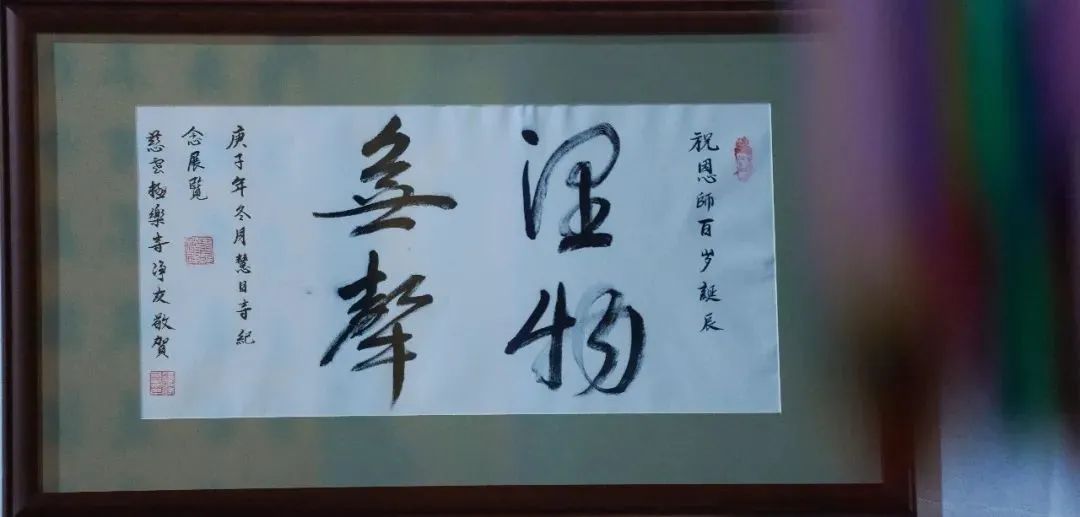 祝恩師百岁誕辰
潤物
無聲
庚子年冬月慧日寺紀
念展覽
慈雲極樂寺净友敬賀